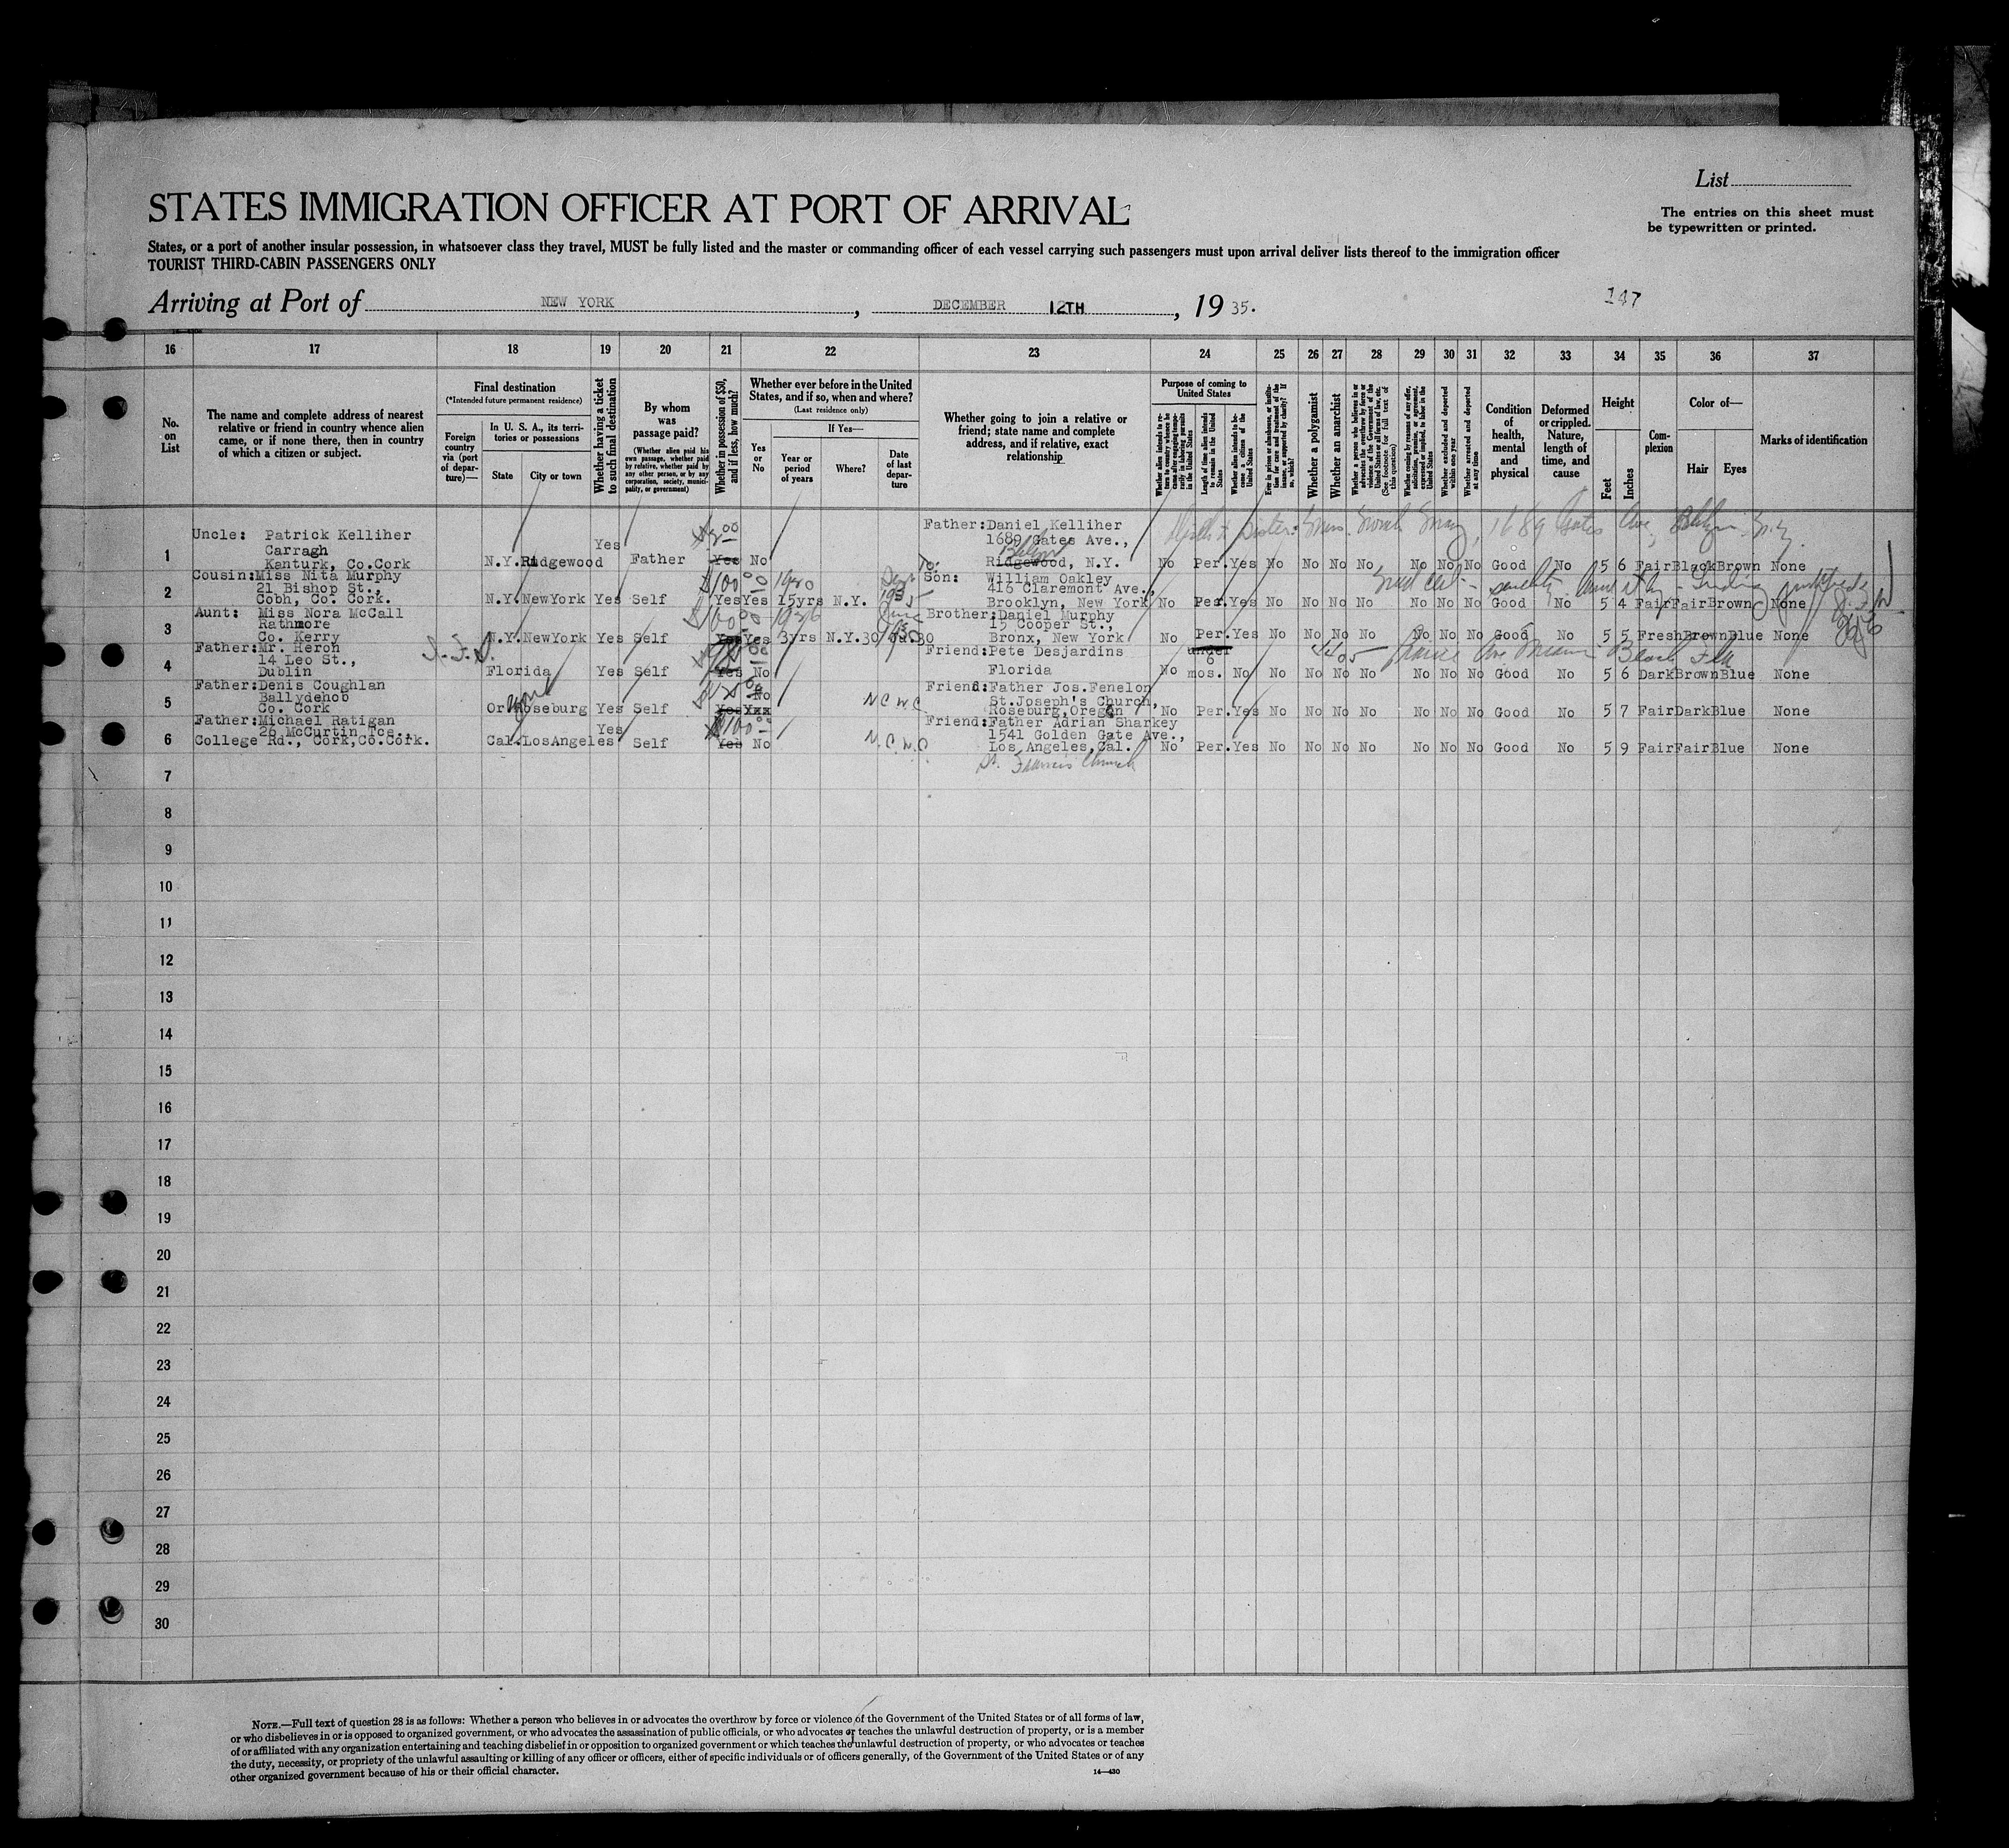 List
The entries on this sheet must
be typewritten or printed.
STATES IMMIGRATION OFFICER AT PORT OF ARRIVAL
States, or a port of another insular possession, in whatsoever class they travel, MUST be fully listed and the master or commanding officer of each vessel carrying such passengers must upon arrival deliver lists thereof to the immigration officer
TOURIST THIRD-CABIN PASSENGERS ONLY
Arriving at Port of NEW YORK, DECEMBER 12TH, 19 35.
147
16 17 18 19 20 21 22 23 24 25 26 27 28 29 30 31 32 33 34 35 36 37
No. on List
The name and complete address of nearest
relative or friend in country whence alien
came, or if none there, then in country
of which a citizen or subject.
Final destination
(*Intended future permanent residence)
Foreign country via (port of departure)—
In U. S. A., its territories or possessions
State
City or town
Whether having a ticket to such final destination
By whom was passage paid?
(Whether alien paid his own passage, whether paid by relative, whether paid by any other person, or by any corporation, society, municipality, or government)
Whether in possession of $50, and if less, how much?
Whether ever before in the United States, and if so, when and where?
(Last residence only)
Yes or No
If Yes—
Year or period of years
Where?
Date of last departure
Whether going to join a relative or
friend; state name and complete
address, and if relative, exact
relationship
Purpose of coming to United States
Whether alien intends to return to country whence he came after engaging temporarily in laboring pursuits in the United States
Length of time alien intends to remain in the United States
Whether alien intends to become a citizen of the United States
Ever in prison or almshouse, or institution for care and treatment of the insane, or supported by charity? If so, which?
Whether a polygamist
Whether an anarchist
Whether a person who believes in or advocates the overthrow by force or violence of the Government of the United States or all forms of law, etc. (See footnote for full text of this question)
Whether coming by reasons of any offer, solicitation, promise, or agreement, expressed or implied, to labor in the United States
Whether excluded and deported within one year
Whether arrested and deported at any time
Condition of health, mental and physical
Deformed or crippled. Nature, length of time, and cause
Height
Feet
Inches
Complexion
Color of—
Hair
Eyes
Marks of identification
1 Uncle: Patrick Kelliher
Carragh
Kanturk, Co.Cork
N.Y. Ridgewood Yes Father Yes No
Father:Daniel Kelliher
1689 Gates Ave.,
Ridgewood, N.Y.
No Per. Yes No No No No No No No Good No 5 6 Fair Black Brown None
Sister: 1689 Gates Ave,
2 Cousin:Miss Nita Murphy
21 Bishop St.,
Cobh, Co. Cork.
N.Y. NewYork Yes Self $100 Yes Yes 15yrs N.Y. 1935
Son: William Oakley
416 Claremont Ave.,
Brooklyn, New York
No Per. Yes No No No No No No No Good No 5 4 Fair Fair Brown None
3 Aunt: Miss Nora McCall
Rathmore
Co. Kerry
N.Y. NewYork Yes Self Yes Yes 3yrs N.Y.
Brother:Daniel Murphy
15 Cooper St.,
Bronx, New York
No Per. Yes No No No No No No No Good No 5 5 Fresh Brown Blue None
4 Father:Mr. Heron
14 Leo St.,
Dublin
I.F.S.
Florida Yes Self Yes No
Friend:Pete Desjardins
Florida
No under 6 mos. No No No No No No No No Good No 5 6 Dark Brown Blue None
4405 Ave Miami Beach Fla
5 Father:Denis Coughlan
Ballydehob
Co. Cork
Or. Roseburg Yes Self Yes No
N C W C
Friend:Father Jos.Fenelon
St.Joseph's Church,
Roseburg,Oregon
No Per. Yes No No No No No No No Good No 5 7 Fair Dark Blue None
6 Father:Michael Ratigan
26 McCurtin Tce.,
College Rd., Cork,Co.Cork.
Cal. LosAngeles Yes Self $100 Yes No
N.C.W.C.
Friend:Father Adrian Sharkey
1541 Golden Gate Ave.,
Los Angeles,Cal.
St. Francis Church
No Per. Yes No No No No No No No Good No 5 9 Fair Fair Blue None
7
8
9
10
11
12
13
14
15
16
17
18
19
20
21
22
23
24
25
26
27
28
29
30
NOTE.—Full text of question 28 is as follows: Whether a person who believes in or advocates the overthrow by force or violence of the Government of the United States or of all forms of law,
or who disbelieves in or is opposed to organized government, or who advocates the assassination of public officials, or who advocates or teaches the unlawful destruction of property, or is a member
of or affiliated with any organization entertaining and teaching disbelief in or opposition to organized government or which teaches the unlawful destruction of property, or who advocates or teaches
the duty, necessity, or propriety of the unlawful assaulting or killing of any officer or officers, either of specific individuals or of officers generally, of the Government of the United States or of any
other organized government because of his or their official character.
14—430